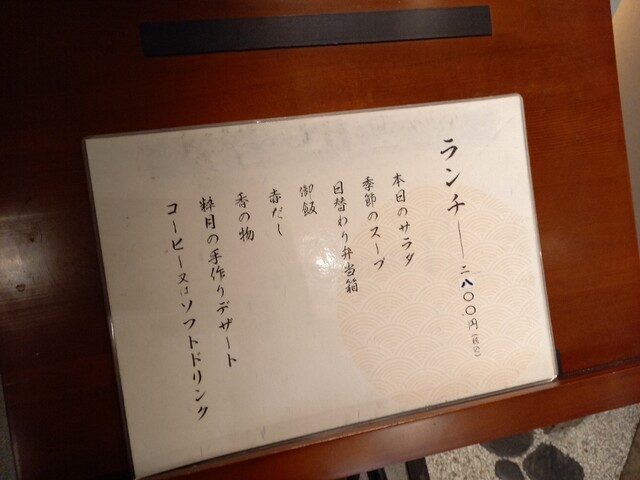 ランチ——二八〇〇円(税込)
本日のサラダ
季節のスープ
日替わり弁当箱
御飯
赤だし
香の物
粋月の手作りデザート
コーヒー又はソフトドリンク